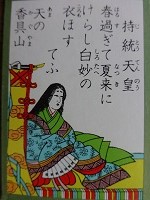 持統天皇
春過ぎて夏来に
けらし白妙の
衣ほす
てふ
天の
香具山